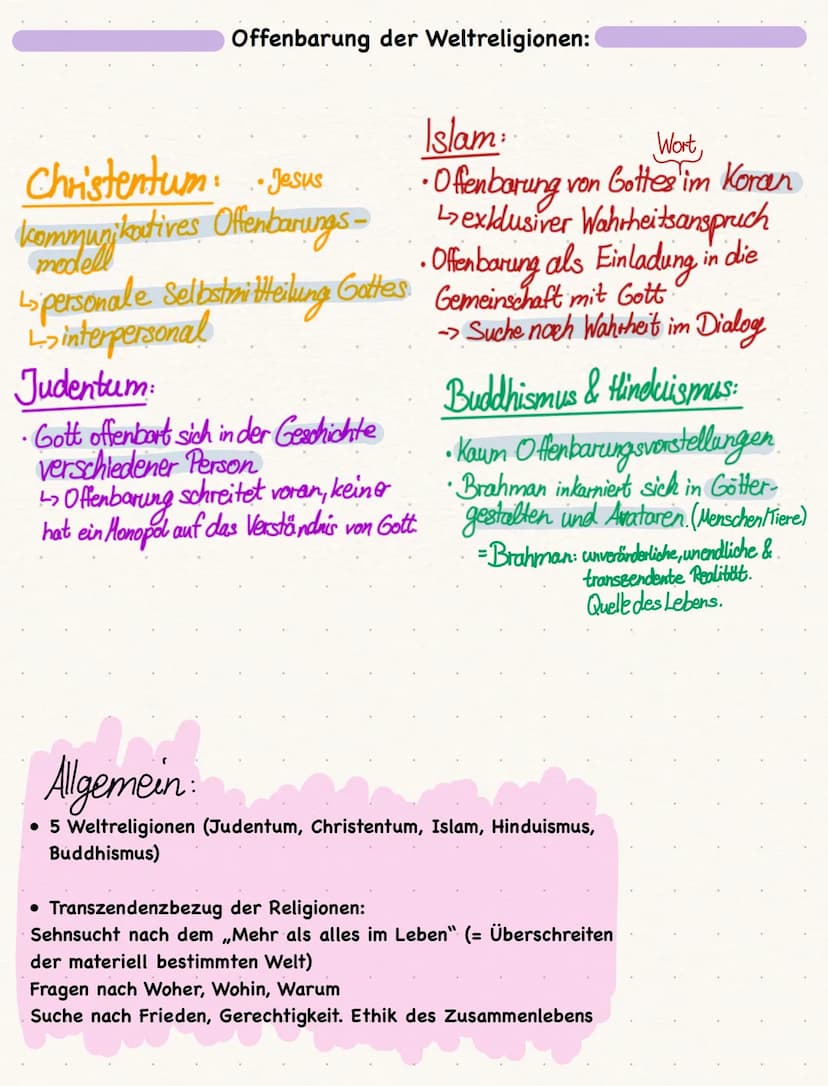 Offenbarung der Weltreligionen:
Christentum: • Jesus
kommunikatives Offenbarungs-
modell
↳ personale Selbstmitteilung Gottes
↳ interpersonal
Judentum:
• Gott offenbart sich in der Geschichte
verschiedener Person
↳ Offenbarung schreitet voran, keiner
hat ein Monopol auf das Verständnis von Gott
Islam:
Wort
• Offenbarung von Gottes im Koran
↳ exklusiver Wahrheitsanspruch
• Offenbarung als Einladung in die
Gemeinschaft mit Gott
-> Suche nach Wahrheit im Dialog
Buddhismus & Hinduismus:
• Kaum Offenbarungsvorstellungen
• Brahman inkarniert sich in Götter-
gestalten und Avataren. (Menschen/Tiere)
= Brahman: unveränderliche, unendliche &
transzendente Realität.
Quelle des Lebens.
Allgemein:
• 5 Weltreligionen (Judentum, Christentum, Islam, Hinduismus,
Buddhismus)
• Transzendenzbezug der Religionen:
Sehnsucht nach dem „Mehr als alles im Leben“ (= Überschreiten
der materiell bestimmten Welt)
Fragen nach Woher, Wohin, Warum
Suche nach Frieden, Gerechtigkeit. Ethik des Zusammenlebens